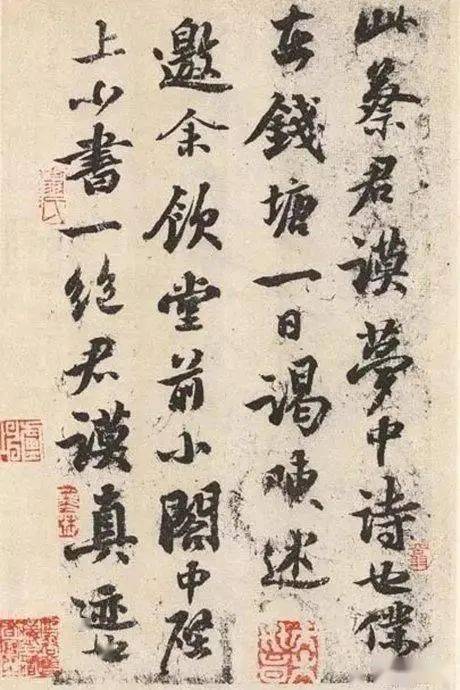 此蔡君謨夢中詩也僕
在錢塘一日謁陳述
邀余飲堂前小閣中壁
上小書一絶君謨真迹也